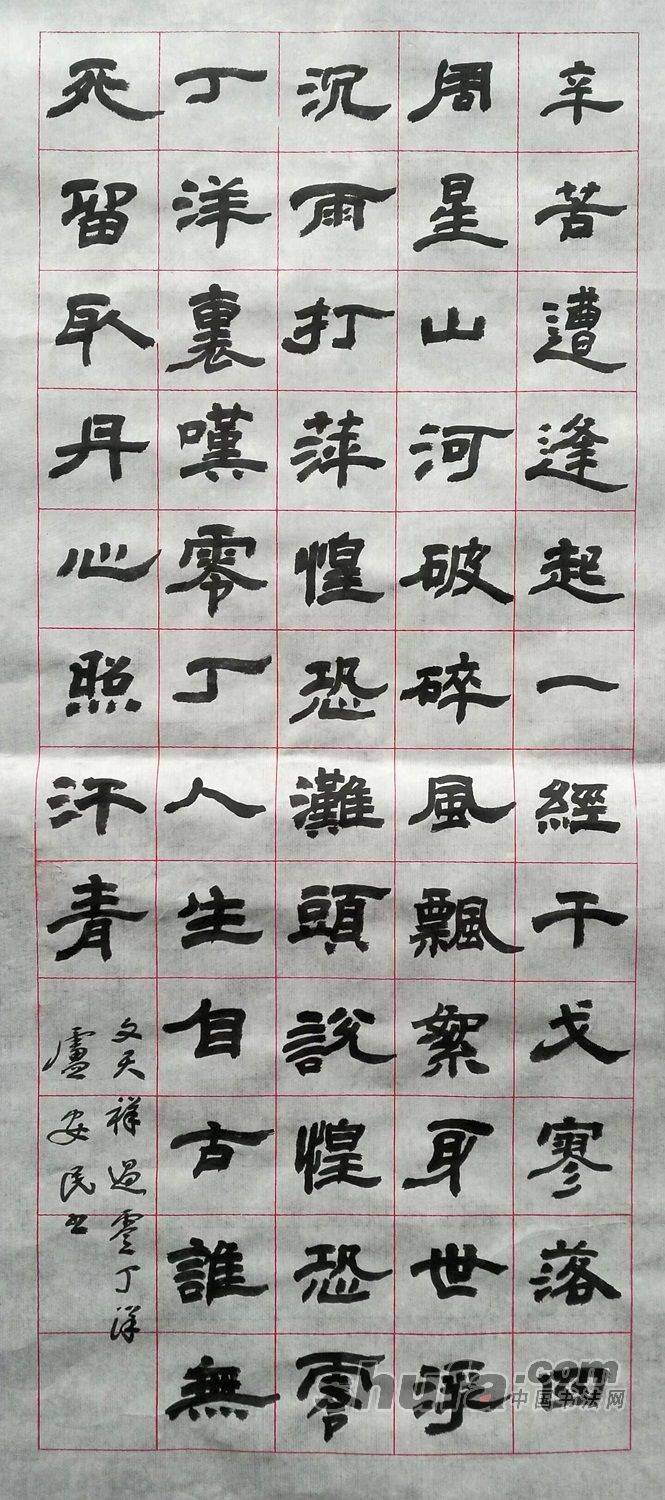 辛苦遭逢起一經干戈寥落四
周星山河破碎風飄絮身世浮
沉雨打萍惶恐灘頭說惶恐零
丁洋裏嘆零丁人生自古誰無
死留取丹心照汗青
文天祥過零丁洋
盧安民书
shufa.com
中国书法网